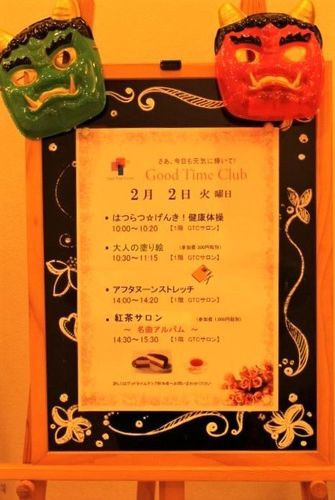 さあ、今日も元気に輝いて!
Good Time Club
2月 2日 火 曜日
• はつらつ☆げんき！健康体操
10:00～10:20 【1階 GTCサロン】
• 大人の塗り絵 (参加費 300円税別)
10:30～11:15 【1階 GTCサロン】
• アフタヌーンストレッチ
14:00～14:20 【1階 GTCサロン】
• 紅茶サロン (参加費 1,000円税別)
～ 名曲アルバム ～
14:30～15:30 【1階 GTCサロン】